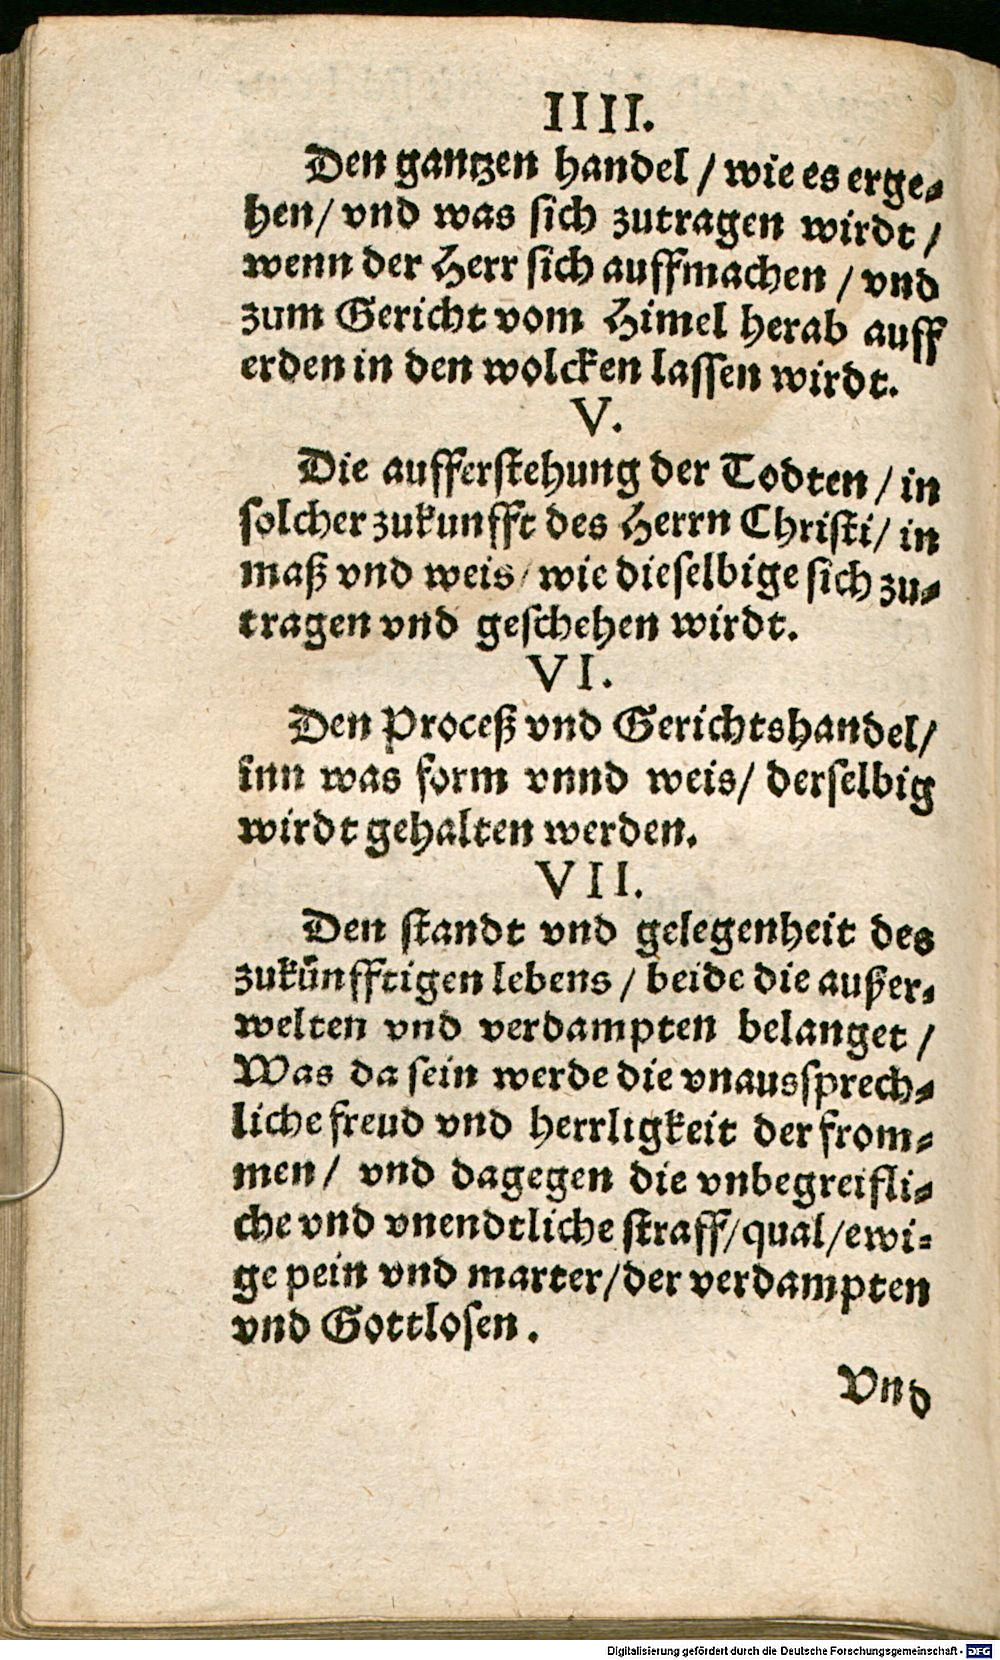 IIII.
Den gantzen handel / wie es erge⸗
hen / vnd was sich zutragen wirdt /
wenn der Herr sich auffmachen / vnd
zum Gericht vom Himel herab auff
erden in den wolcken lassen wirdt.
V.
Die aufferstehung der Todten / in
solcher zukunfft des Herrn Christi / in
maß vnd weis / wie dieselbige sich zu⸗
tragen vnd geschehen wirdt.
VI.
Den Proceß vnd Gerichtshandel /
inn was form vnnd weis / derselbig
wirdt gehalten werden.
VII.
Den standt vnd gelegenheit des
zukünfftigen lebens / beide die außer⸗
welten vnd verdampten belanget /
Was da sein werde die vnaussprech⸗
liche freud vnd herrligkeit der from⸗
men / vnd dagegen die vnbegreifli⸗
che vnd vnendtliche straff / qual / ewi⸗
ge pein vnd marter / der verdampten
vnd Gottlosen.
Vnd
Digitalisierung gefördert durch die Deutsche Forschungsgemeinschaft - DFG